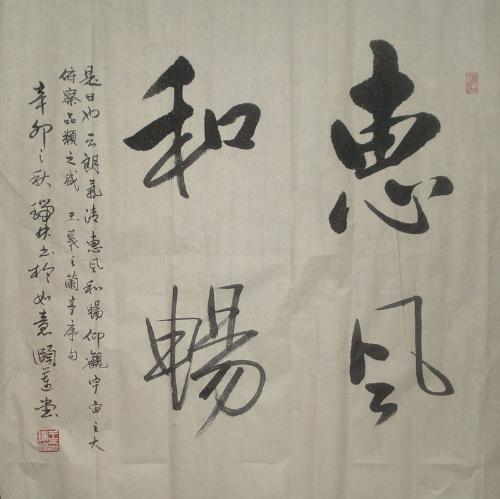 惠风
和暢
是日也天朗氣清惠风和暢仰觀宇宙之大
俯察品類之盛 王羲之蘭亭序句
辛卯之秋 书於如意頤堂